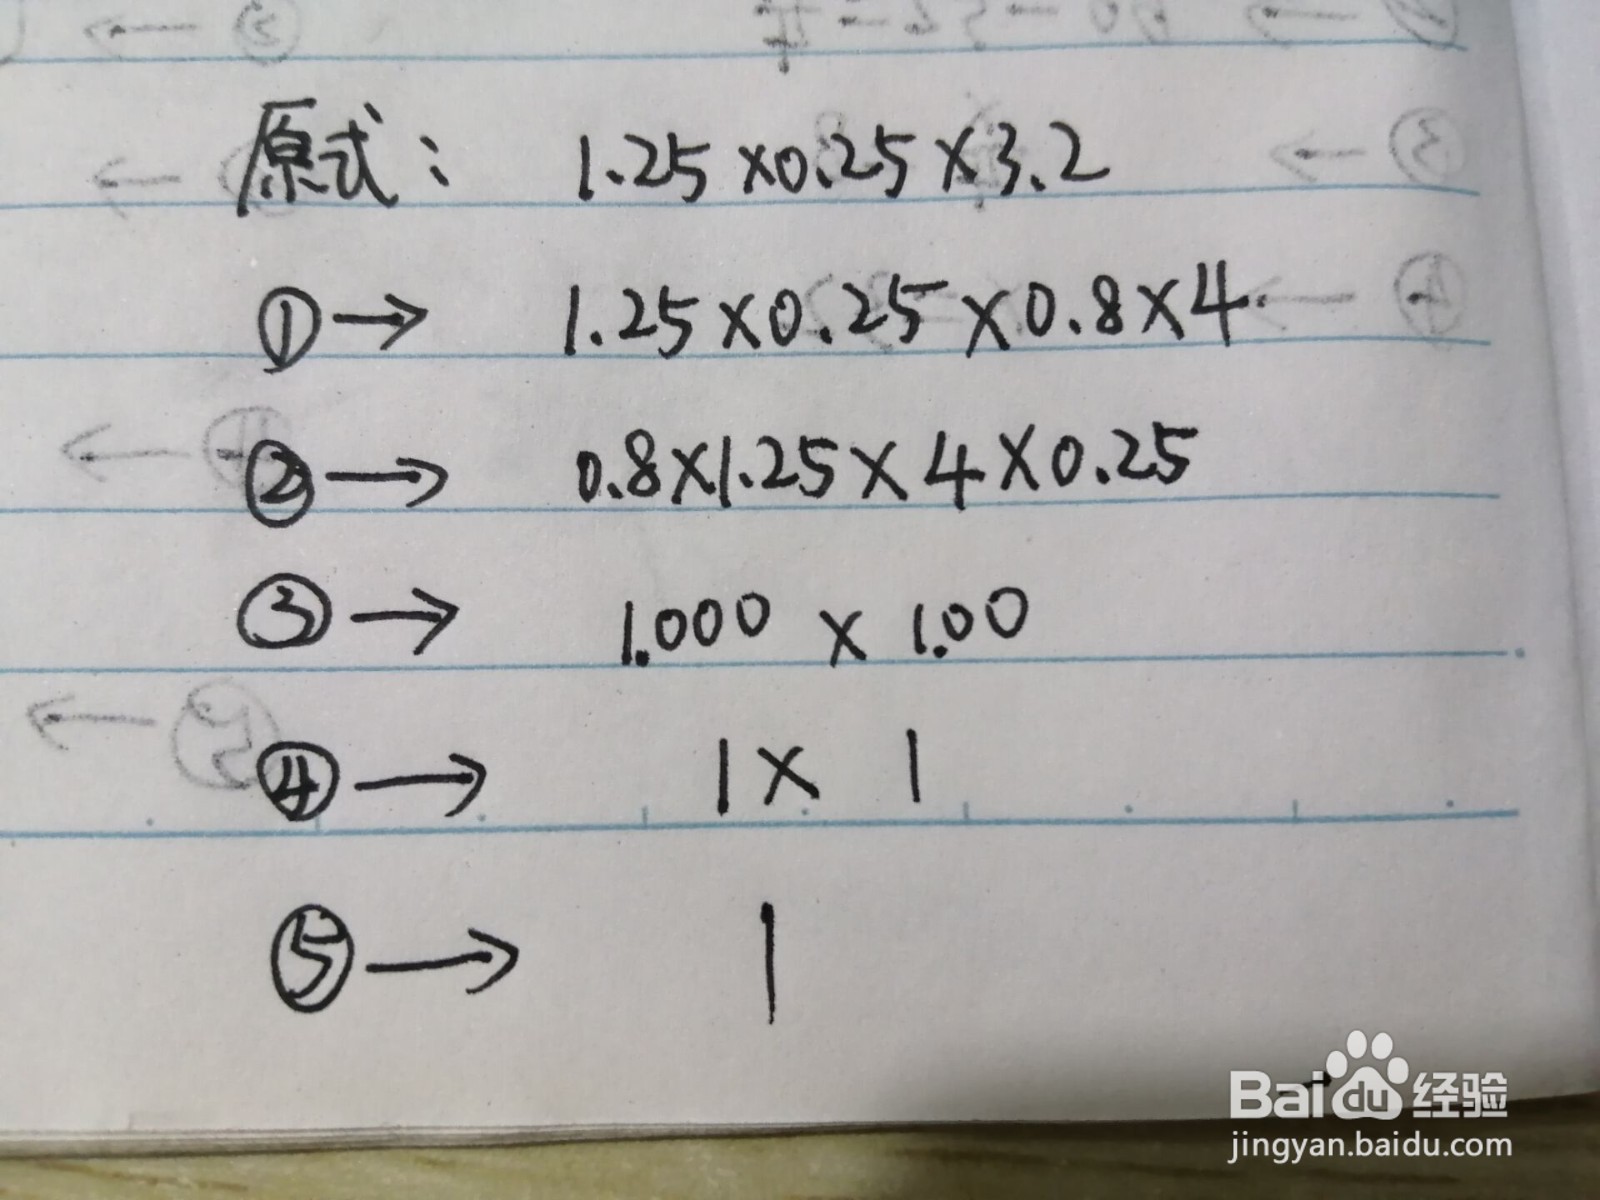 原式： 1.25×0.25×3.2
①→ 1.25×0.25×0.8×4
②→ 0.8×1.25×4×0.25
③→ 1.000×1.00
④→ 1×1
⑤→ 1
Baidu经验
jingyan.baidu.com